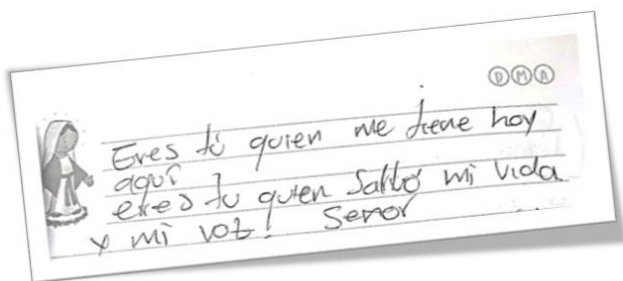 D M A
Eres tú quien me tiene hoy
aquí
eres tu quien Salvó mi vida
y mi voz! Señor